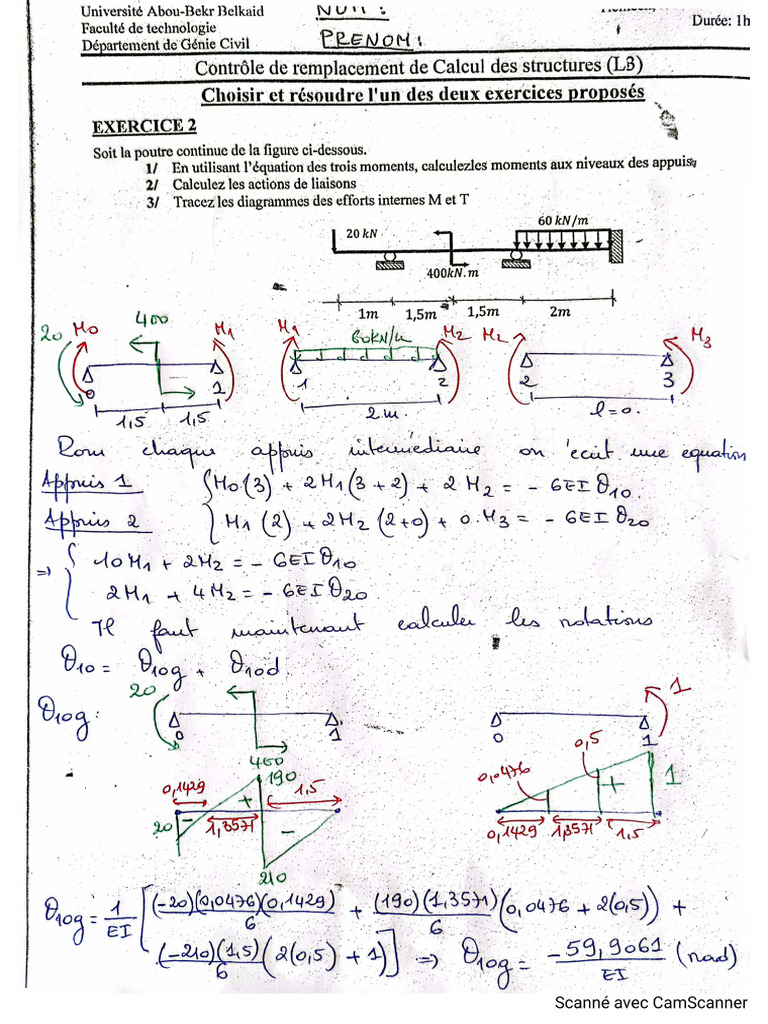 Université Abou-Bekr Belkaid
Faculté de technologie
Département de Génie Civil
NOM :
PRENOM :
Durée: 1h
Contrôle de remplacement de Calcul des structures (L3)
Choisir et résoudre l'un des deux exercices proposés
EXERCICE 2
Soit la poutre continue de la figure ci-dessous.
1/ En utilisant l'équation des trois moments, calculezles moments aux niveaux des appuis,
2/ Calculez les actions de liaisons
3/ Tracez les diagrammes des efforts internes M et T
20 kN
60 kN/m
400kN.m
1m 1,5m 1,5m 2m
20 M0 400 M1
0 1
1,5 1,5
M1 60kN/m M2
1 2
2m.
M2 M3
2 3
l=0.
Pour chaque appuis intermédiaire on écrit une equation
Appuis 1 { M0(3) + 2M1(3+2) + 2M2 = -6EIθ10.
Appuis 2 { M1(2) + 2M2(2+0) + 0.M3 = -6EIθ20
=> { 10M1 + 2M2 = -6EIθ10
2M1 + 4M2 = -6EIθ20.
Il faut maintenant calculer les rotations
θ10 = θ10g + θ10d.
θ10g:
20
0 1
400
1
0 1
0,1429 190 1,5
20 - 1,3571 + -
210
0,0476 0,5 + 1
0,1429 1,3571 1,5
θ10g = 1/EI [ (-20)(0,0476)(0,1429)/6 + (190)(1,3571)/6 (0,0476 + 2(0,5)) +
(-210)(1,5)/6 (2(0,5) + 1) ] => θ10g = -59,9061/EI (rad)
Scanné avec CamScanner